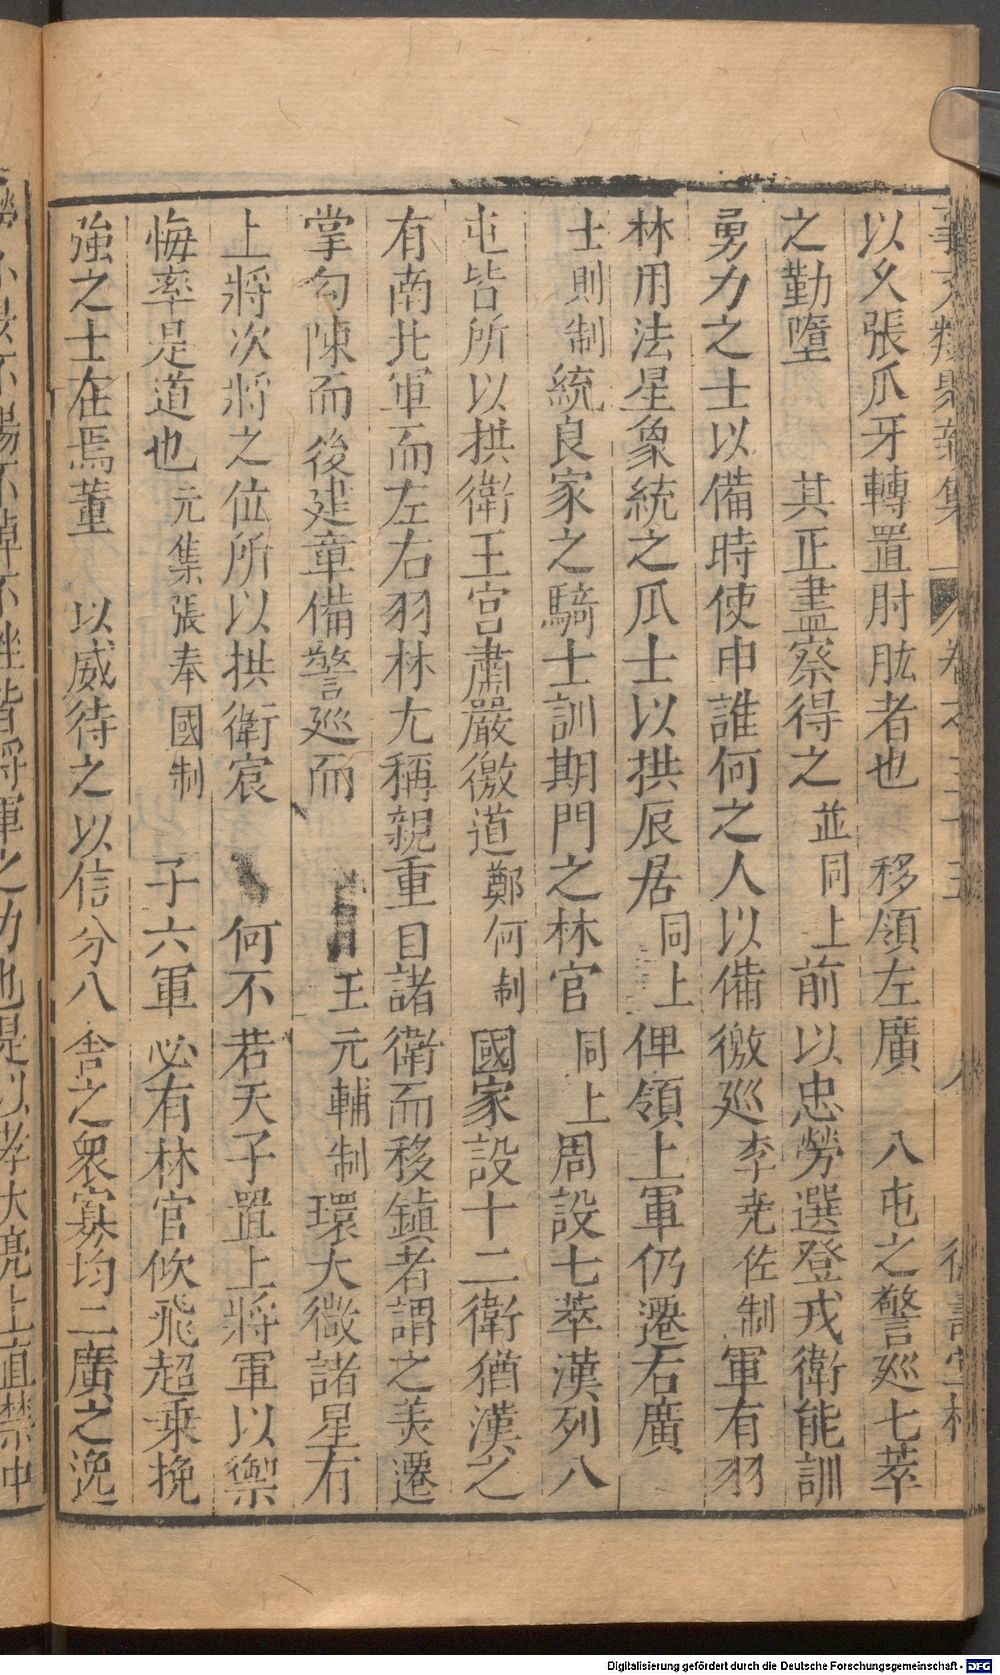 以久張爪牙轉置肘肱者也 移領左廣 八屯之警巡七萃
之勤墮 其正盡察得之並同上前以忠勞選登戎衛能訓
勇力之士以備時使申誰何之人以備徼巡李尭佐制軍有羽
林用法星象統之爪士以拱辰居同上俾領上軍仍遷右廣
士則制統良家之騎士訓期門之林官同上周設七萃漢列八
屯皆所以拱衛王宮肅嚴徼道鄭何制國家設十二衛猶漢之
有南北軍而左右羽林尤稱親重目諸衛而移鎮者謂之美遷
掌勾陳而後建章備警巡而 王元輔制環大微諸星有
上將次將之位所以拱衛宸 何不若天子置上將軍以禦
侮率是道也元集張奉國制 子六軍必有林官佽飛超乗挽
強之士在焉董 以威待之以信分八舎之衆寡均二廣之逸
卷之三十五
八
德壽堂梓
Digitalisierung gefördert durch die Deutsche Forschungsgemeinschaft - DFG